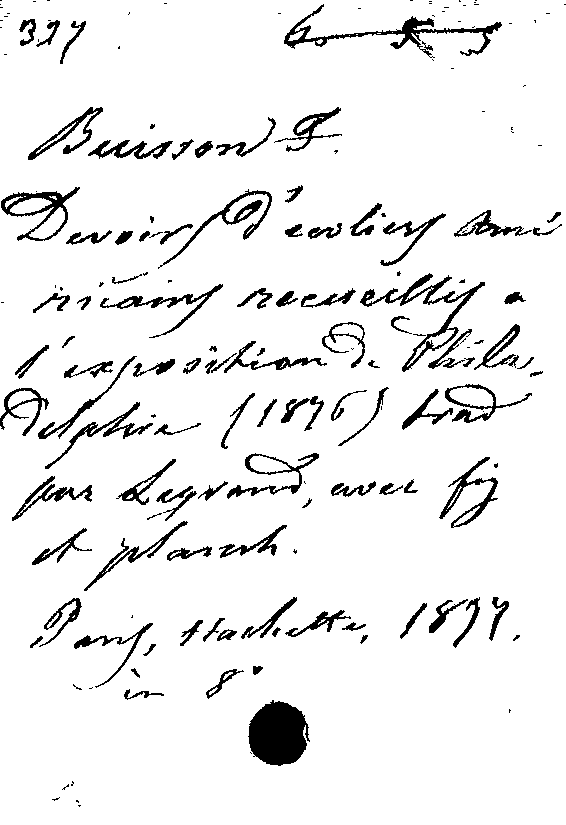 327
Buisson F.
Devoirs d'ecoliers Amé
ricains recueillis a
l'exposition de Phila-
delphie (1876) trad
par Legrand, avec fig
et planch.
Paris, Hachette, 1877.
in 8°